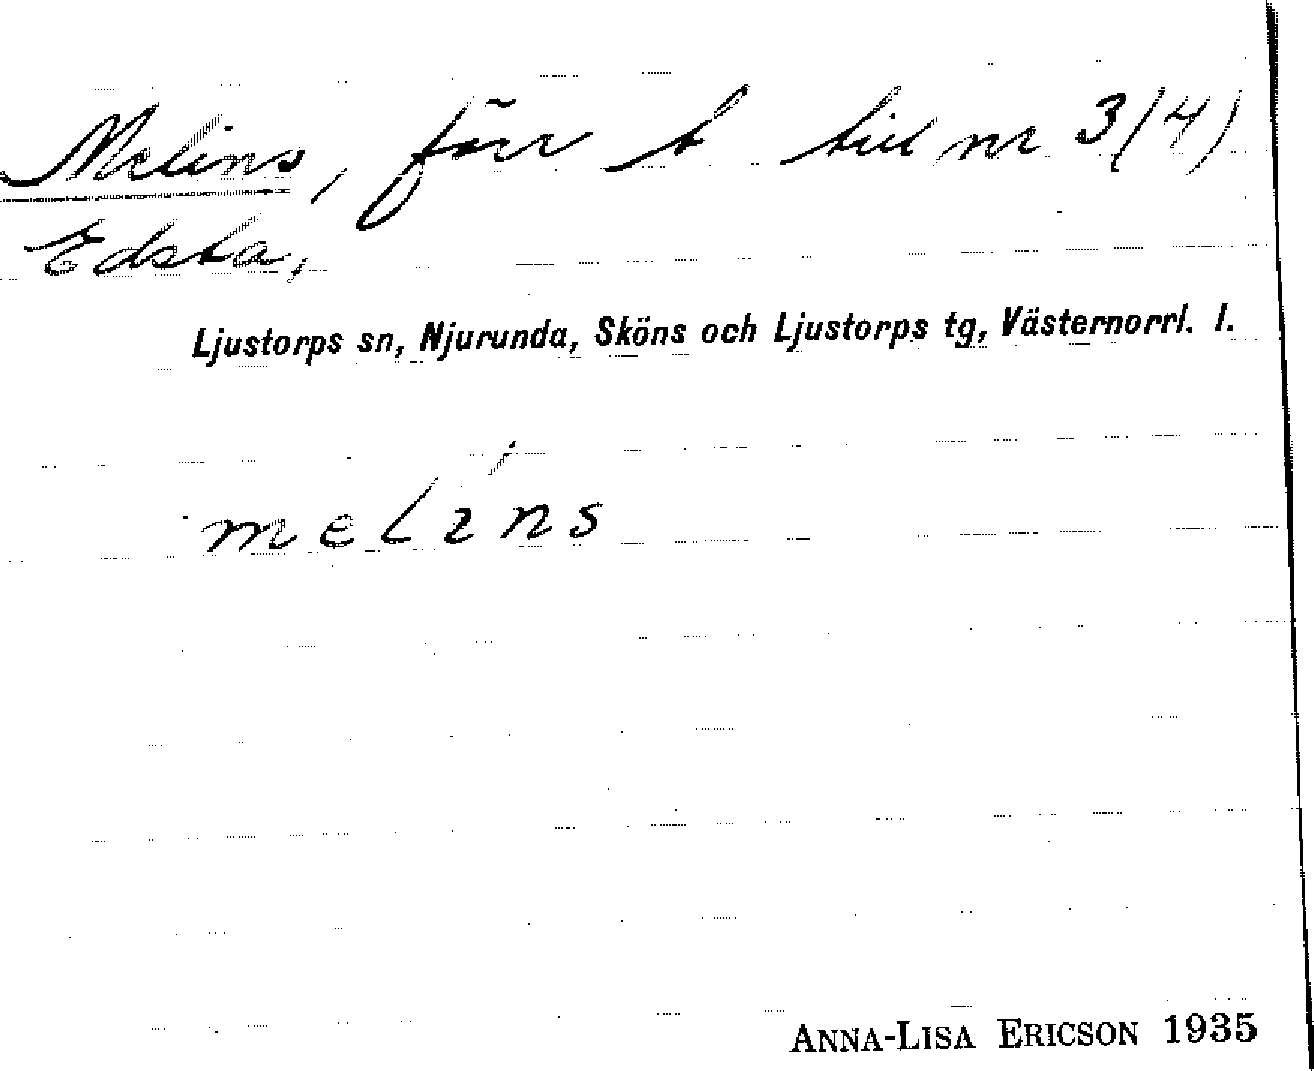 Melins, förr t till nr 3(4)
Edsta,
Ljustorps sn, Njurunda, Sköns och Ljustorps tg, Västernorrl. l.
melins
ANNA-LISA ERICSON 1935